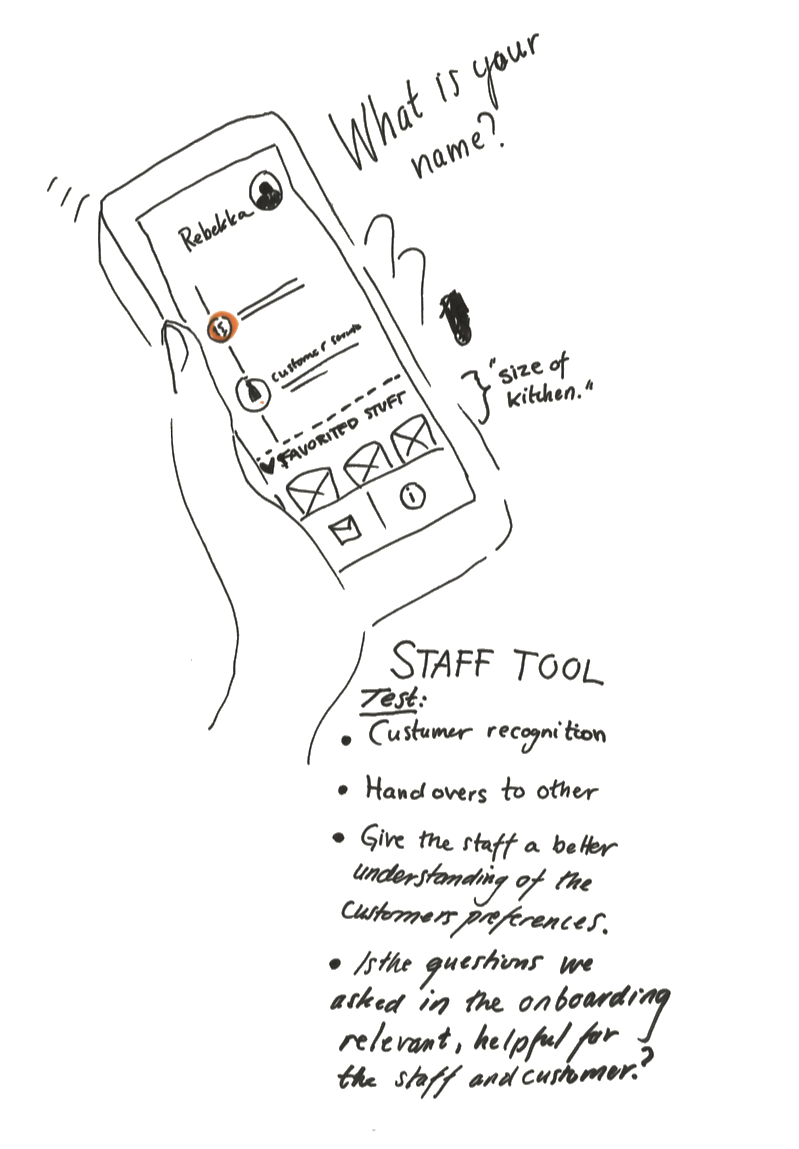 What is your
name?
Rebekka
Customer
FAVORITED STUFF
i
"size of
kitchen."
STAFF TOOL
Test:
• Custumer recognition
• Handovers to other
• Give the staff a better
understanding of the
customers preferences.
• Is the questions we
asked in the onboarding
relevant, helpful for
the staff and customer.?